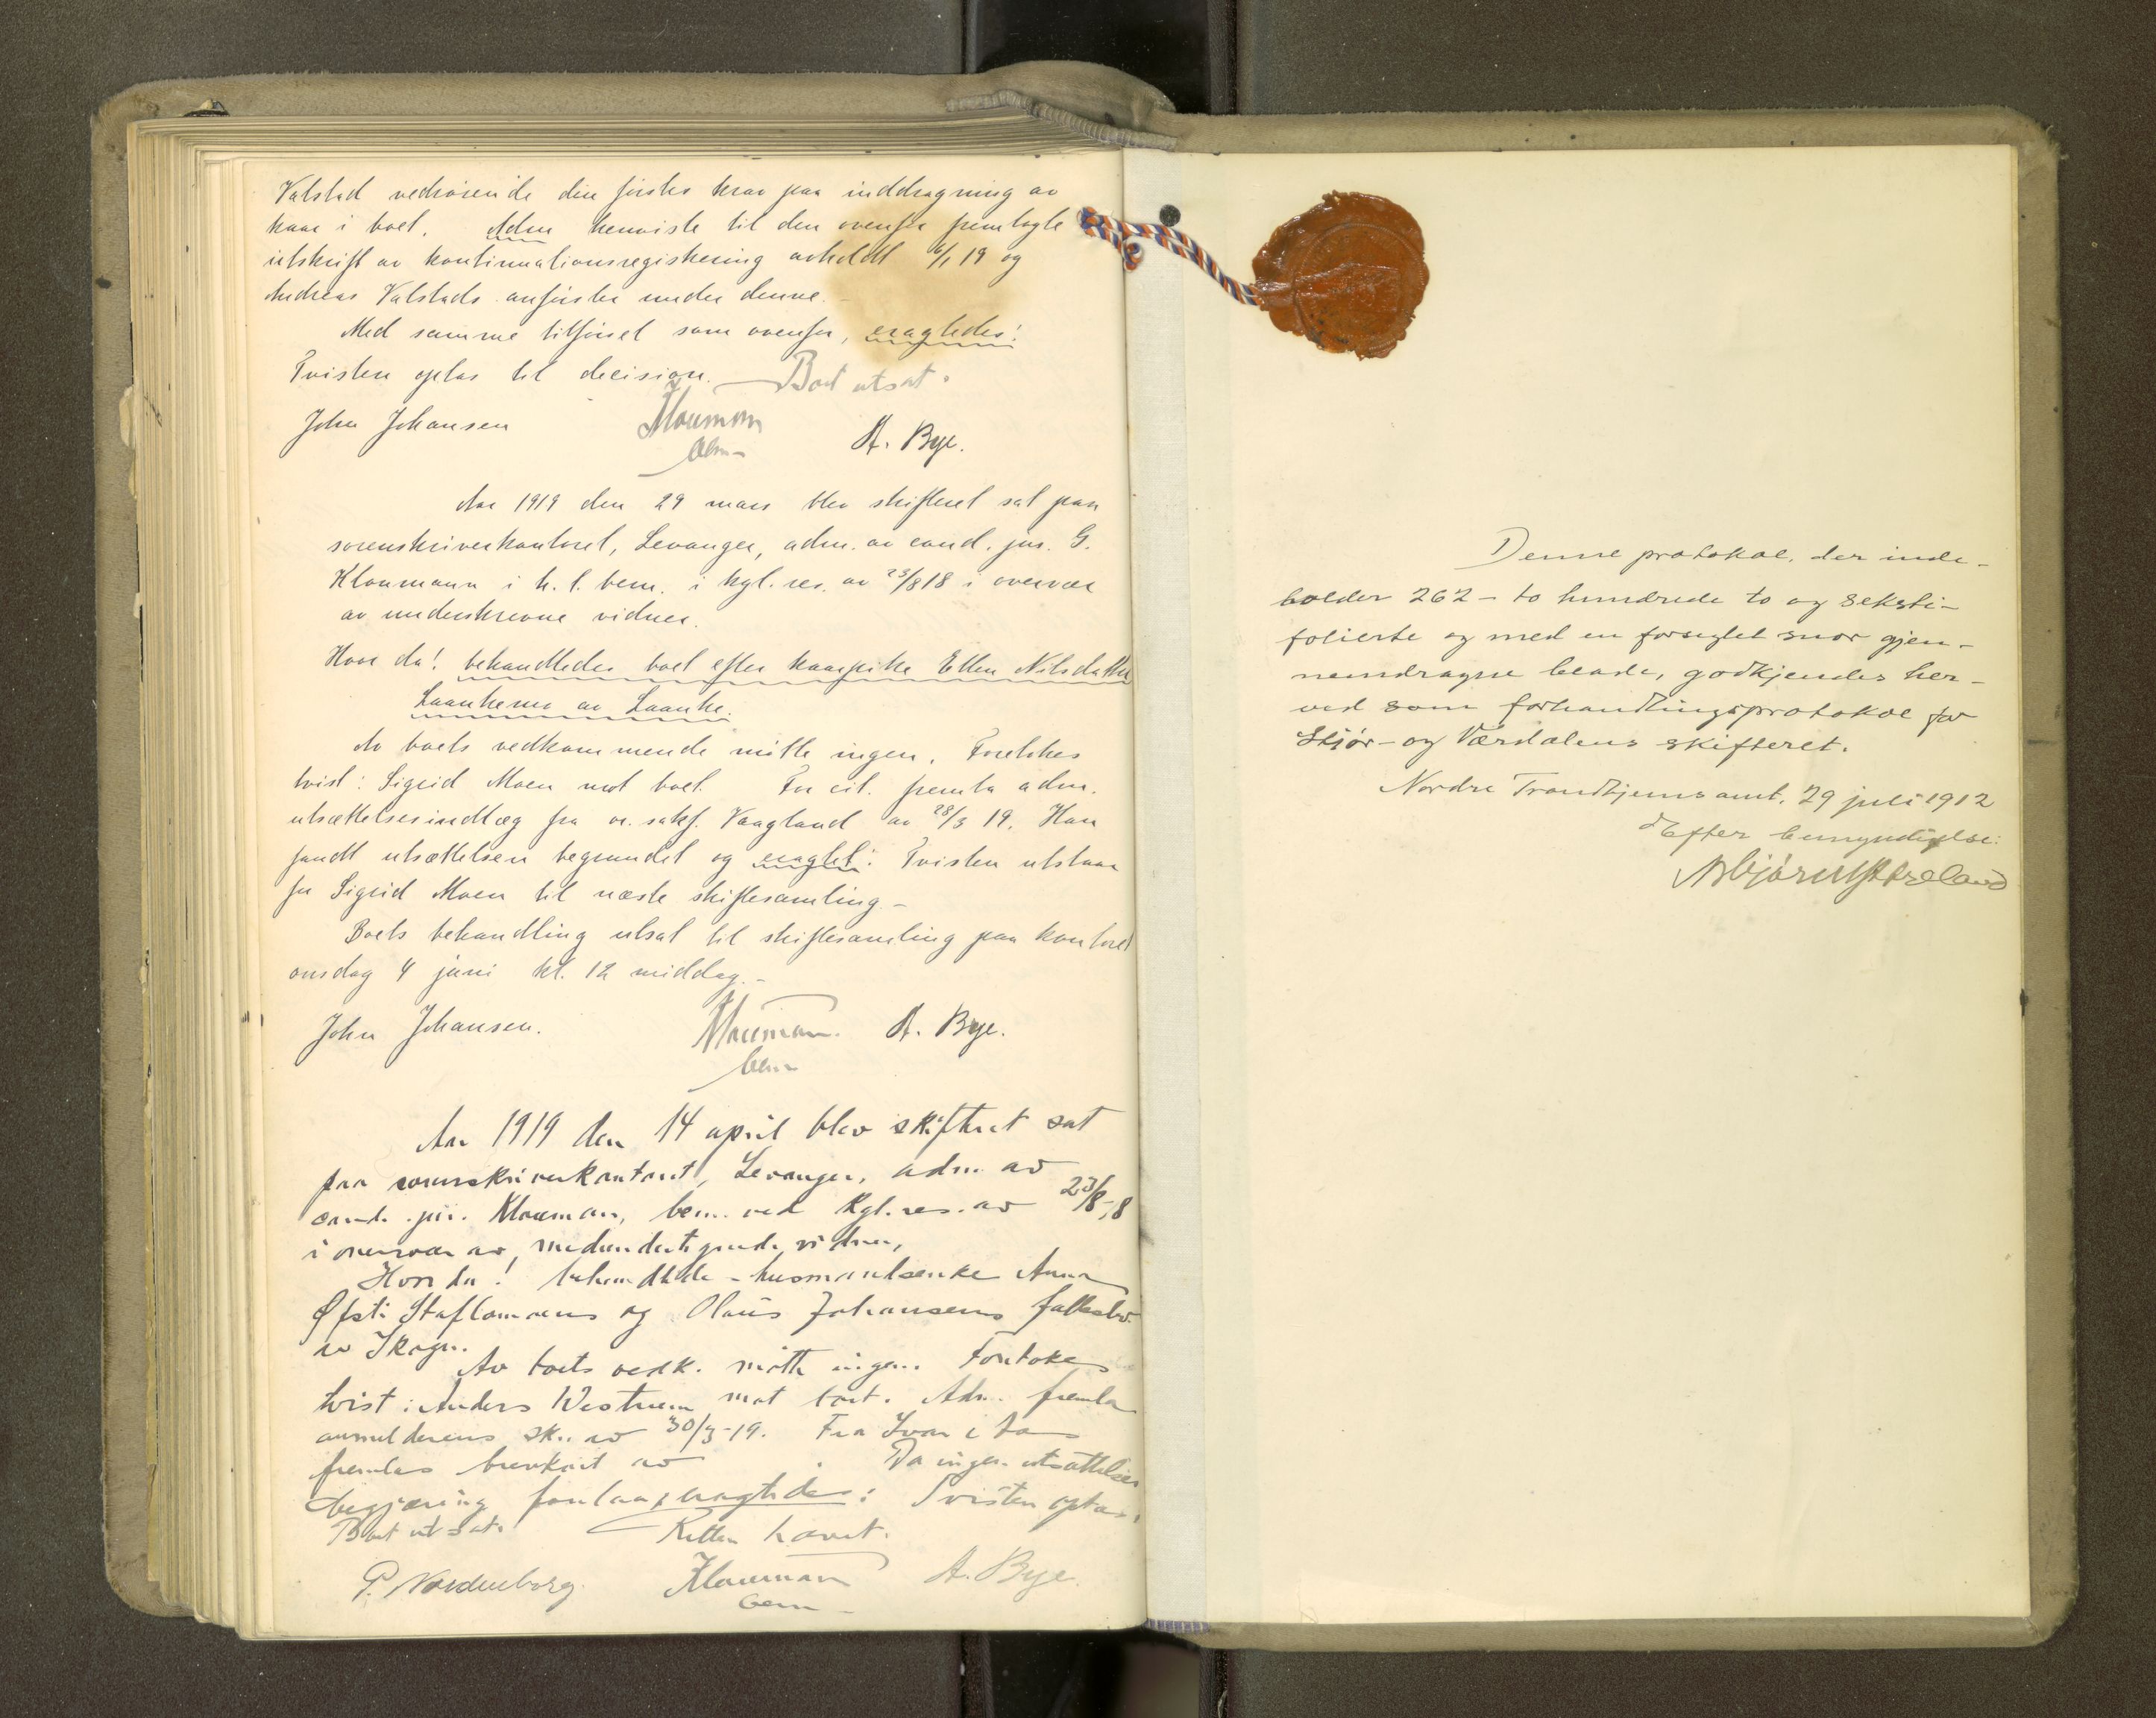 Valstad vedrørende den førstes krav paa inddragning av
kaar i boet. Adm henviste til den ovenfor fremlagte
utskrift av kontinuationsregistrering avholdt 6/1 19 og
Andreas Valstads anførsler under denne.
Med samme tilførsel som ovenfor, eragtedes:
Tvisten optas til decision. Boet utsat.
John Johansen Klouman A. Bye.
bem
Aar 1919 den 29 mars blev skifteret sat paa
sorenskriverkontoret, Levanger, adm. av cand. jur. G.
Kloumann i h. t. bem. i kgl. res. av 23/8 18 i overvær
av underskrevne vidner.
Hvor da! behandledes boet efter kaarpike Ellen Nilsdatter
Laankemo av Laanke.
Av boets vedkommende møtte ingen. Foretokes
tvist: Sigrid Moen mot boet. For cit. fremla adm.
utsættelsesindlæg fra o.r. sakf. Vaagland av 28/3 19. Han
fandt utsættelsen begrundet og eragtet: Tvisten utstaar
for Sigrid Moen til næste skiftesamling.-
Boets behandling utsat til skiftesamling paa kontoret
onsdag 4 juni kl. 12 middag.-
John Johansen. Klouman. A. Bye.
bem
Aar 1919 den 14 april blev skifteret sat
paa sorenskriverkontoret, Levanger, adm. av
cand. jur. Klouman, bem. ved kgl. res. av 23/8-18
i overvær av medundertegnede vidner,
Hvor da! behandlede - husmandsenke Anna
Øfsti Staflomoens og Olaus Johansens fællesbo
av Skogn.
Av boets vedk. møtte ingen. Foretokes
tvist: Anders Westrum mot boet. Adm. fremla
anmelderens skr. av 30/3-19. Fra
fremlas brevkort av . Da ingen utsættelses
begjæring forelaa, eragtedes: Tvisten optas.
Boet utsat. Retten hævet.
P. Nordenborg. Klouman A. Bye.
bem
Denne protokol, der inde-
holder 262 - to hundrede to og seksti-
folierte og med en forseglet snor gjen-
nemdragne blade, godkjendes her-
ved som forhandlingsprotokol for
Stjør- og Værdalens skifteret.
Nordre Trondhjems amt, 29 juli 1912
Efter bemyndigelse: